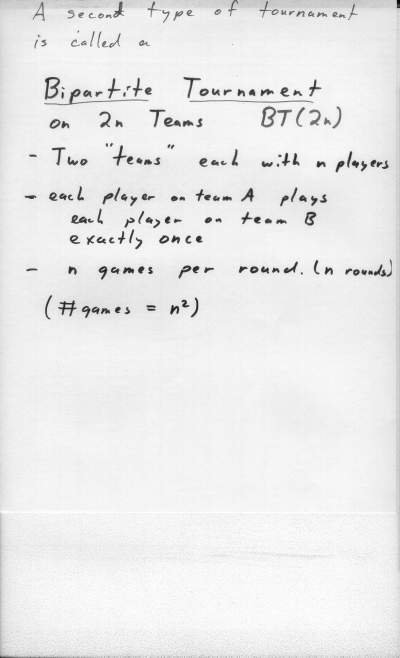 A second type of tournament
is called a
Bipartite Tournament
on 2n Teams BT(2n)
- Two "teams" each with n players
- each player on team A plays
each player on team B
exactly once
- n games per round. (n rounds)
(# games = n²)